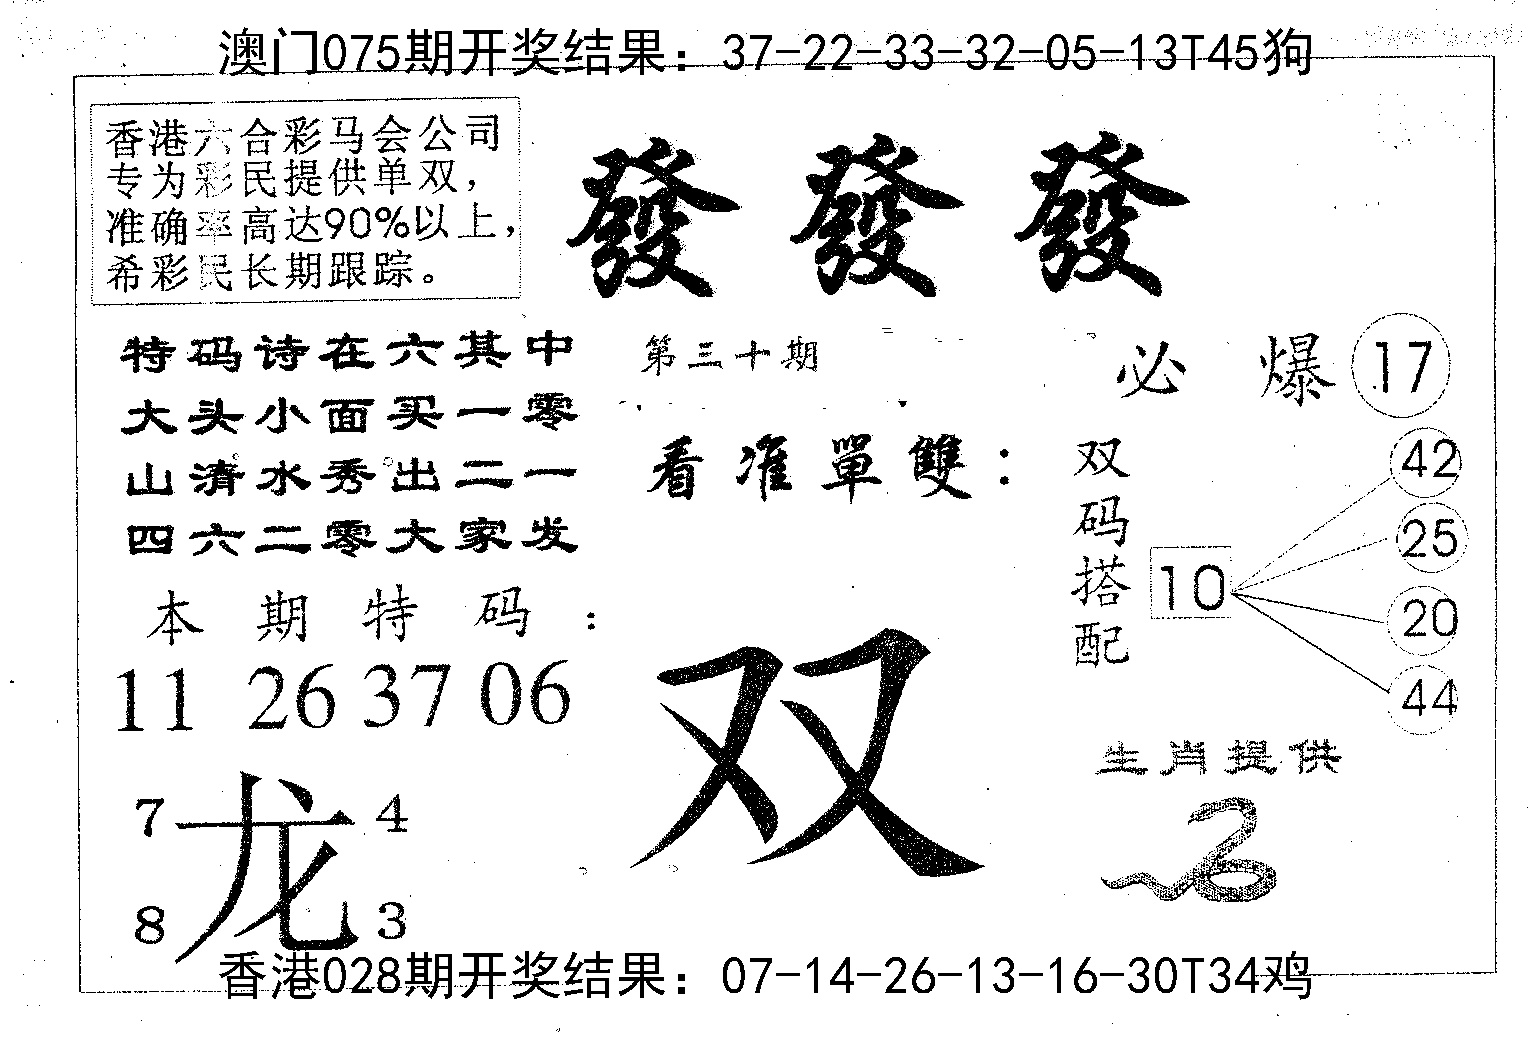 澳门075期开奖结果：37-22-33-32-05-13T45狗
香港六合彩马会公司
专为彩民提供单双，
准确率高达90%以上，
希彩民长期跟踪。
發 發 發
特码诗在六其中
大头小面买一零
山清水秀出二一
四六二零大家发
第三十期
必 爆 17
看准單雙：
双码搭配
10
42
25
20
44
本期特码：
11 26 37 06
双
生肖提供
7 4
龙
8 3
香港028期开奖结果：07-14-26-13-16-30T34鸡